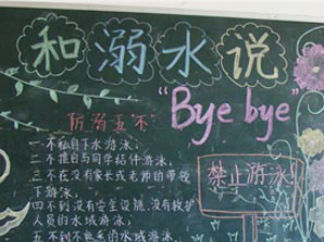 和溺水说
"Bye bye"
防溺五不
一不私自下水游泳;
二不擅自与同学结伴游泳,
三不在没有家长或老师的带领
下游泳,
四不到没有安全设施,没有救护
人员的水域游泳;
五不到不熟悉的水域游泳
禁止游泳!